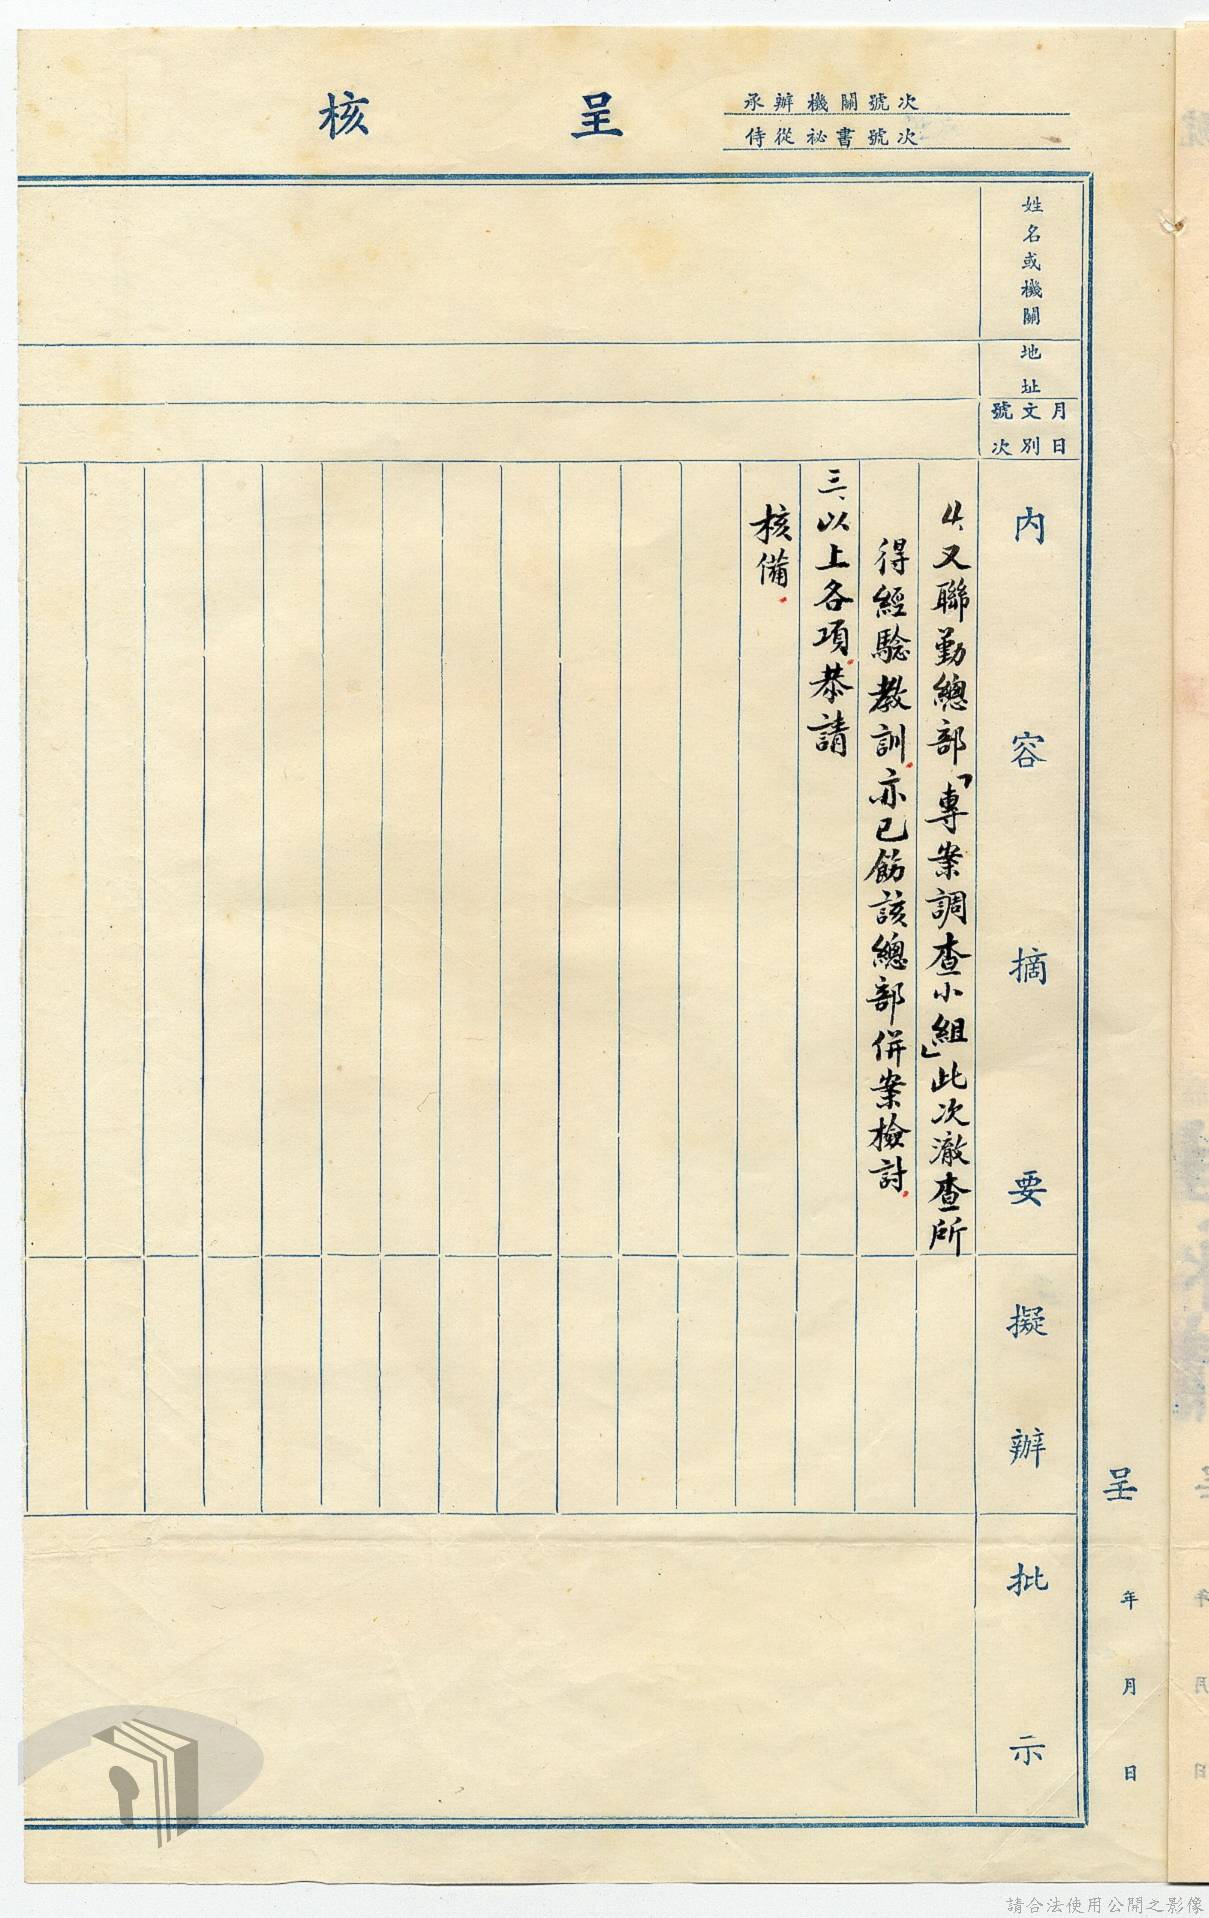 核呈
承辦機關號次
侍從祕書號次
姓名或機關
地址
月日
文別
號次
內容摘要
擬辦
批示
4、又聯勤總部「專案調查小組」此次澈查所
得經驗教訓.亦已飭該總部併案檢討.
三、以上各項.恭請
核備.
呈
年月日
請合法使用公開之影像